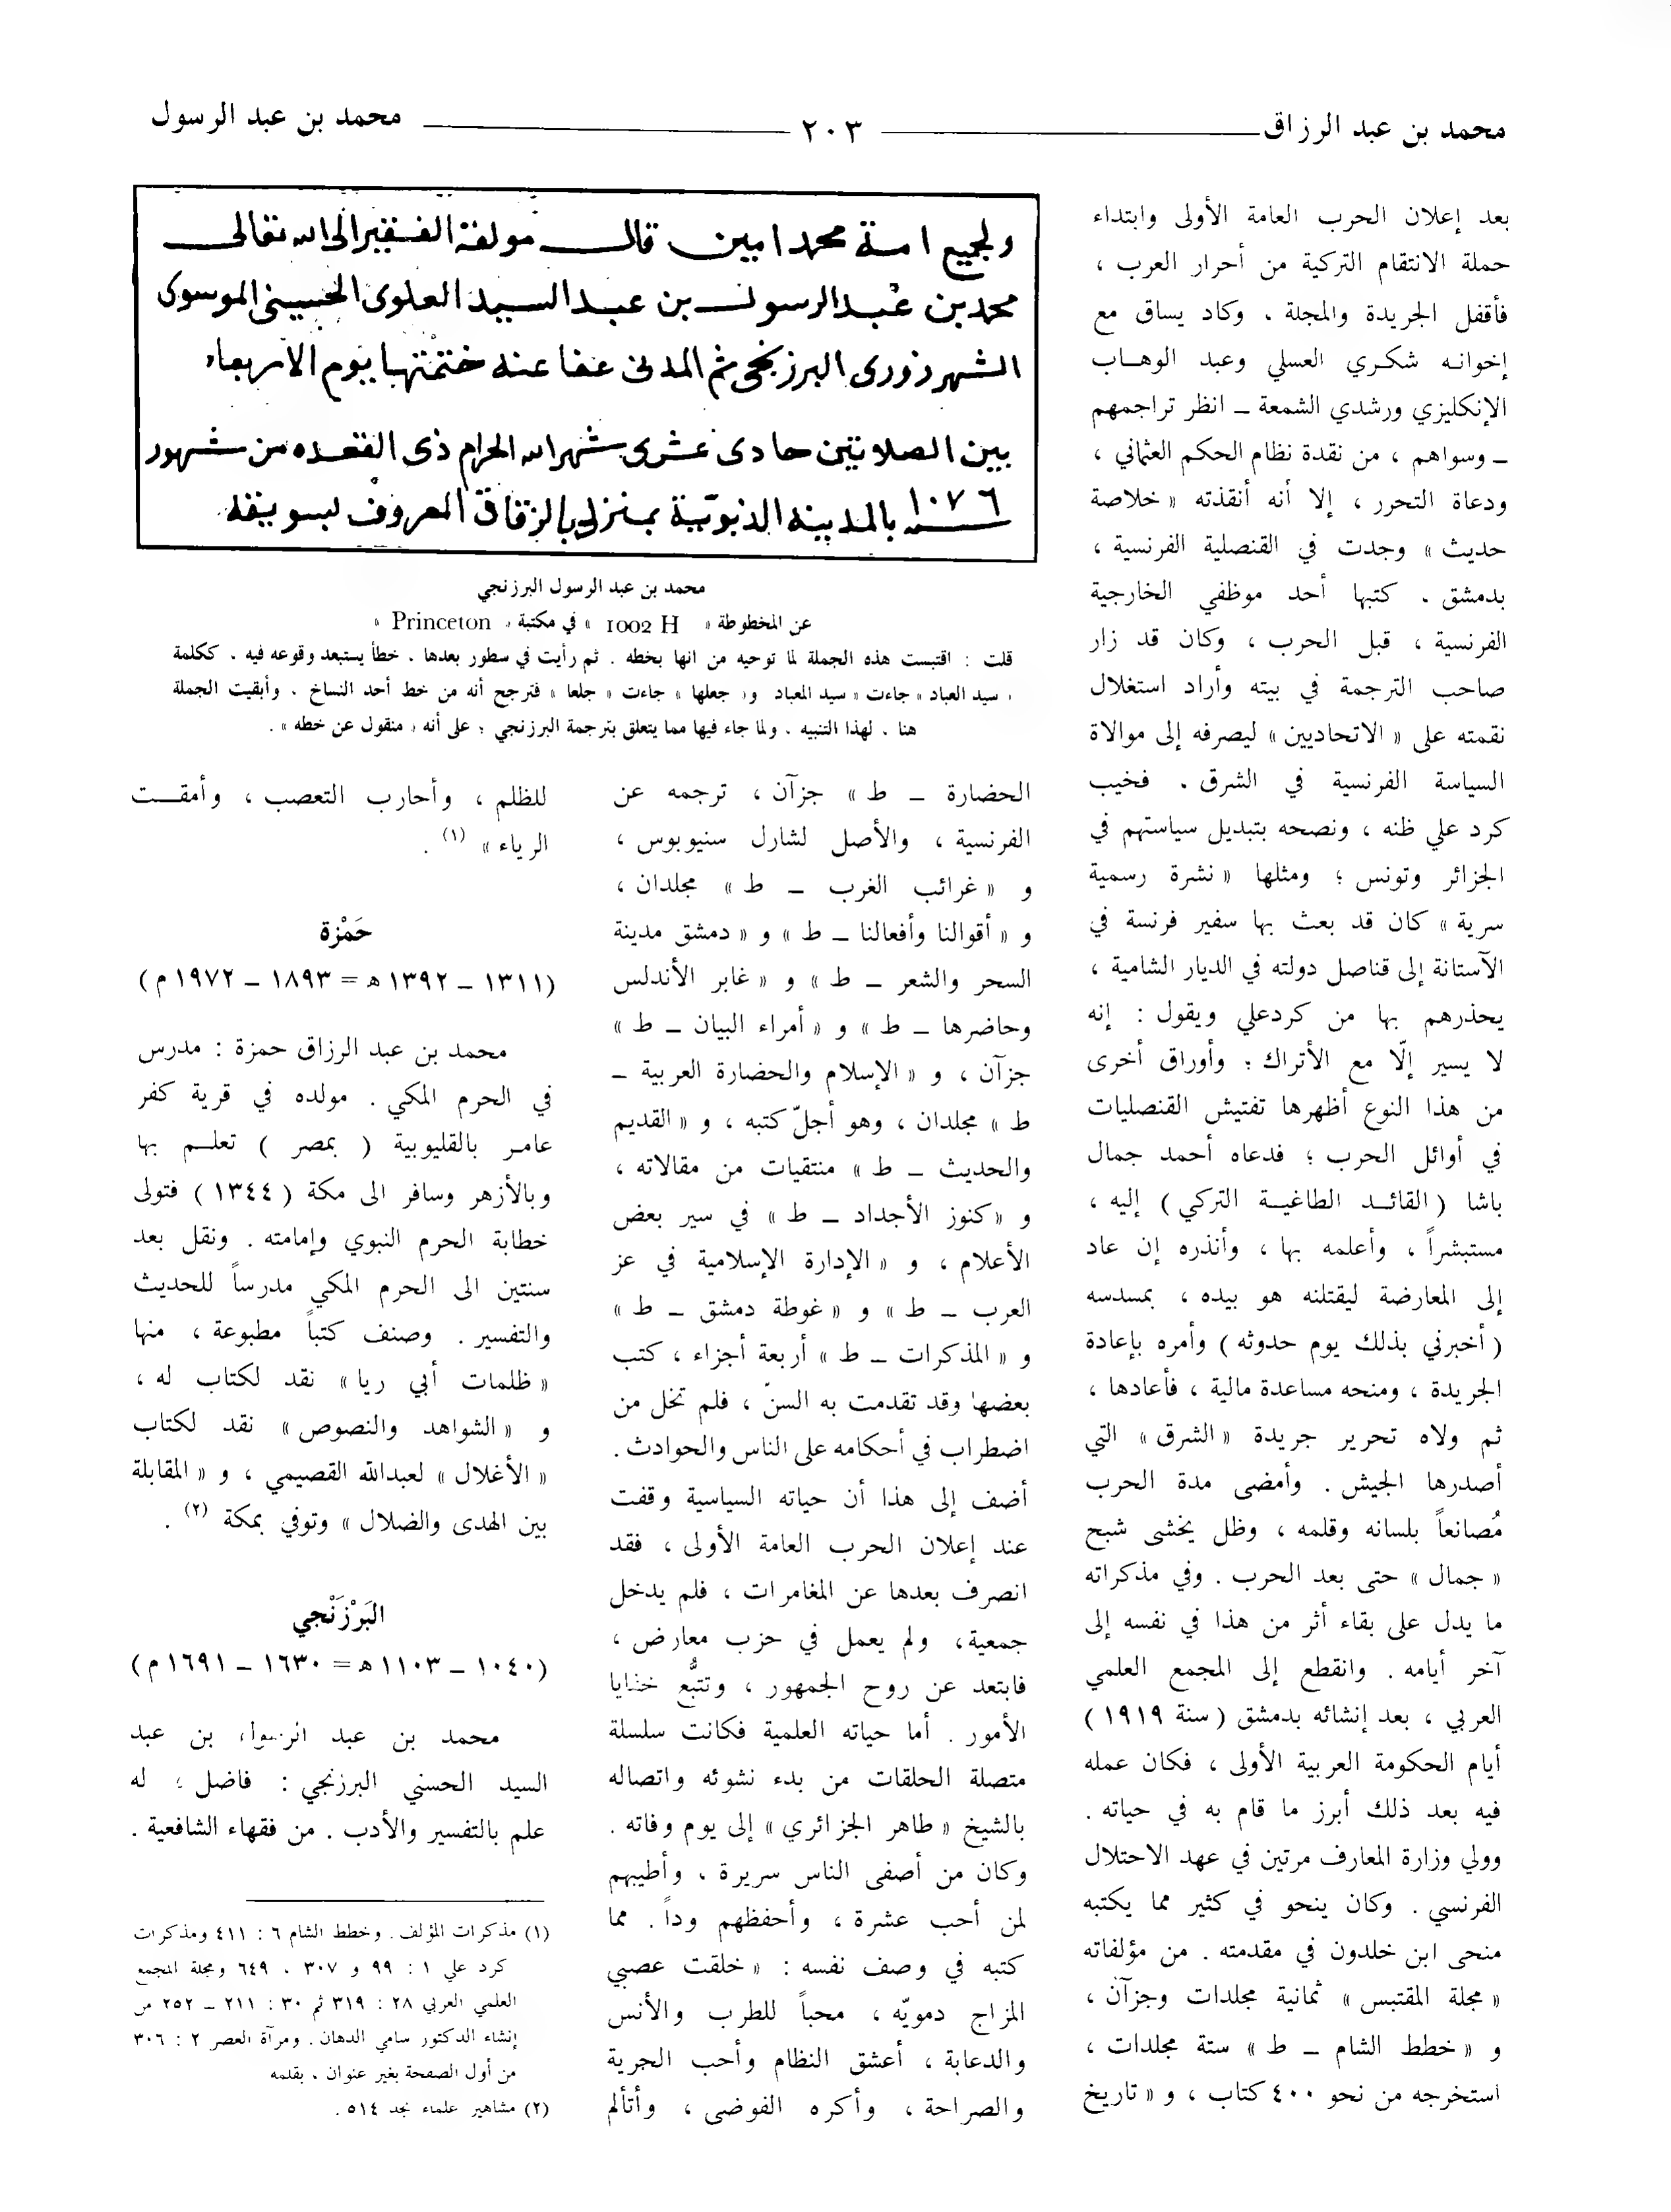 محمد بن عبد الرزاق
٢٠٣
محمد بن عبد الرسول
بعد إعلان الحرب العامة الأولى وابتداء
حملة الانتقام التركية من أحرار العرب ،
فأقفل الجريدة والمجلة . وكاد يساق مع
إخوانه شكري العسلي وعبد الوهاب
الإنكليزي ورشدي الشمعة ــ انظر تراجمهم
ــ وسواهم ، من نقدة نظام الحكم العثماني ،
ودعاة التحرر ، إلا أنه أنقذته « خلاصة
حديث » وجدت في القنصلية الفرنسية ،
بدمشق . كتبها أحد موظفي الخارجية
الفرنسية ، قبل الحرب ، وكان قد زار
صاحب الترجمة في بيته وأراد استغلال
نقمته على « الاتحاديين » ليصرفه إلى موالاة
السياسة الفرنسية في الشرق . فخيب
كرد علي ظنه ، ونصحه بتبديل سياستهم في
الجزائر وتونس ؛ ومثلها « نشرة رسمية
سرية » كان قد بعث بها سفير فرنسة في
الآستانة إلى قناصل دولته في الديار الشامية ،
يحذرهم بها من كردعلي ويقول : إنه
لا يسير إلّا مع الأتراك ؛ وأوراق أخرى
من هذا النوع أظهرها تفتيش القنصليات
في أوائل الحرب ؛ فدعاه أحمد جمال
باشا ( القائد الطاغية التركي ) إليه ،
مستبشراً ، وأعلمه بها ، وأنذره إن عاد
إلى المعارضة ليقتلنه هو بيده ، بمسدسه
( أخبرني بذلك يوم حدوثه ) وأمره بإعادة
الجريدة ، ومنحه مساعدة مالية ، فأعادها ،
ثم ولاه تحرير جريدة « الشرق » التي
أصدرها الجيش . وأمضى مدة الحرب
مُصانعاً بلسانه وقلمه ، وظل يخشى شبح
« جمال » حتى بعد الحرب . وفي مذكراته
ما يدل على بقاء أثر من هذا في نفسه إلى
آخر أيامه . وانقطع إلى المجمع العلمي
العربي ، بعد إنشائه بدمشق ( سنة ١٩١٩ )
أيام الحكومة العربية الأولى ، فكان عمله
فيه بعد ذلك أبرز ما قام به في حياته .
وولي وزارة المعارف مرتين في عهد الاحتلال
الفرنسي . وكان ينحو في كثير مما يكتبه
منحى ابن خلدون في مقدمته . من مؤلفاته
« مجلة المقتبس » ثمانية مجلدات وجزآن ،
و « خطط الشام ــ ط » ستة مجلدات ،
استخرجه من نحو ٤٠٠ كتاب ، و « تاريخ
ولجميع امة محمد امين قال مولفة الفقير الى الله تعالى
محمد بن عبد الرسول بن عبد السيد العلوى الحسينى الموسوى
الشهرزورى البرزنجى ثم المدنى عفا عنه ختمتها يوم الاربعاء
بين الصلاتين حادى عشرى شهر الله الحرام ذى القعده من شهور
١٠٧٦ بالمدينه النبوية بمنزلى بالزقاق المعروف لبسويقه
محمد بن عبد الرسول البرزنجي
عن المخطوطة « 1002 H » في مكتبة « Princeton »
قلت : اقتبست هذه الجملة لما توحيه من انها بخطه . ثم رأيت في سطور بعدها ، خطأ يستبعد وقوعه فيه ، ككلمة
« سيد العباد » جاءت « سيد المعباد » و« جعلها » جاءت « جلعا » فترجح أنه من خط أحد النساخ . وأبقيت الجملة
هنا ، لهذا التنبيه ، ولما جاء فيها مما يتعلق بترجمة البرزنجي ؛ على أنه « منقول عن خطه » .
الحضارة ــ ط » جزآن ، ترجمه عن
الفرنسية ، والأصل لشارل سنيوبوس ،
و « غرائب الغرب ــ ط » مجلدان ،
و « أقوالنا وأفعالنا ــ ط » و « دمشق مدينة
السحر والشعر ــ ط » و « غابر الأندلس
وحاضرها ــ ط » و « أمراء البيان ــ ط »
جزآن ، و « الإسلام والحضارة العربية ــ
ط » مجلدان ، وهو أجلّ كتبه ، و « القديم
والحديث ــ ط » منتقيات من مقالاته ،
و « كنوز الأجداد ــ ط » في سير بعض
الأعلام ، و « الإدارة الإسلامية في عز
العرب ــ ط » و « غوطة دمشق ــ ط »
و « المذكرات ــ ط » أربعة أجزاء ، كتب
بعضها وقد تقدمت به السنّ ، فلم تخل من
اضطراب في أحكامه على الناس والحوادث .
أضف إلى هذا أن حياته السياسية وقفت
عند إعلان الحرب العامة الأولى ، فقد
انصرف بعدها عن المغامرات ، فلم يدخل
جمعية ، ولم يعمل في حزب معارض ،
فابتعد عن روح الجمهور ، وتتبُّع خفايا
الأمور . أما حياته العلمية فكانت سلسلة
متصلة الحلقات من بدء نشوئه واتصاله
بالشيخ « طاهر الجزائري » إلى يوم وفاته .
وكان من أصفى الناس سريرة ، وأطيبهم
لمن أحب عشرة ، وأحفظهم وداً . مما
كتبه في وصف نفسه : « خلقت عصبي
المزاج دمويّه ، محباً للطرب والأنس
والدعابة ، أعشق النظام وأحب الحرية
والصراحة ، وأكره الفوضى ، وأتألم
للظلم ، وأحارب التعصب ، وأمقت
الرياء » (١) .
حَمْزة
(١٣١١ ــ ١٣٩٢ هـ = ١٨٩٣ ــ ١٩٧٢ م)
محمد بن عبد الرزاق حمزة : مدرس
في الحرم المكي . مولده في قرية كفر
عامر بالقليوبية ( بمصر ) تعلم بها
وبالأزهر وسافر الى مكة ( ١٣٤٤ ) فتولى
خطابة الحرم النبوي وإمامته . ونقل بعد
سنتين الى الحرم المكي مدرساً للحديث
والتفسير . وصنف كتباً مطبوعة ، منها
« ظلمات أبي ريا » نقد لكتاب له ،
و « الشواهد والنصوص » نقد لكتاب
« الأغلال » لعبدالله القصيمي ، و « المقابلة
بين الهدى والضلال » وتوفي بمكة (٢) .
البَرْزَنْجي
(١٠٤٠ ــ ١١٠٣ هـ = ١٦٣٠ ــ ١٦٩١ م)
محمد بن عبد الرسول بن عبد
السيد الحسني البرزنجي : فاضل ؛ له
علم بالتفسير والأدب . من فقهاء الشافعية .
(١) مذكرات المؤلف . وخطط الشام ٦ : ٤١١ ومذكرات
كرد علي ١ : ٩٩ و ٣٠٧ ، ٦٤٩ ومجلة المجمع
العلمي العربي ٢٨ : ٣١٩ ثم ٣٠ : ٢١١ ــ ٢٥٢ من
إنشاء الدكتور سامي الدهان . ومرآة العصر ٢ : ٣٠٦
من أول الصفحة بغير عنوان ، بقلمه
(٢) مشاهير علماء نجد ٥١٤ .